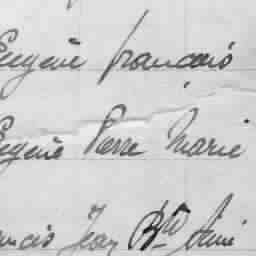 Eugène françois
Eugène Pierre Marie
ancis Jean Bte Aimé